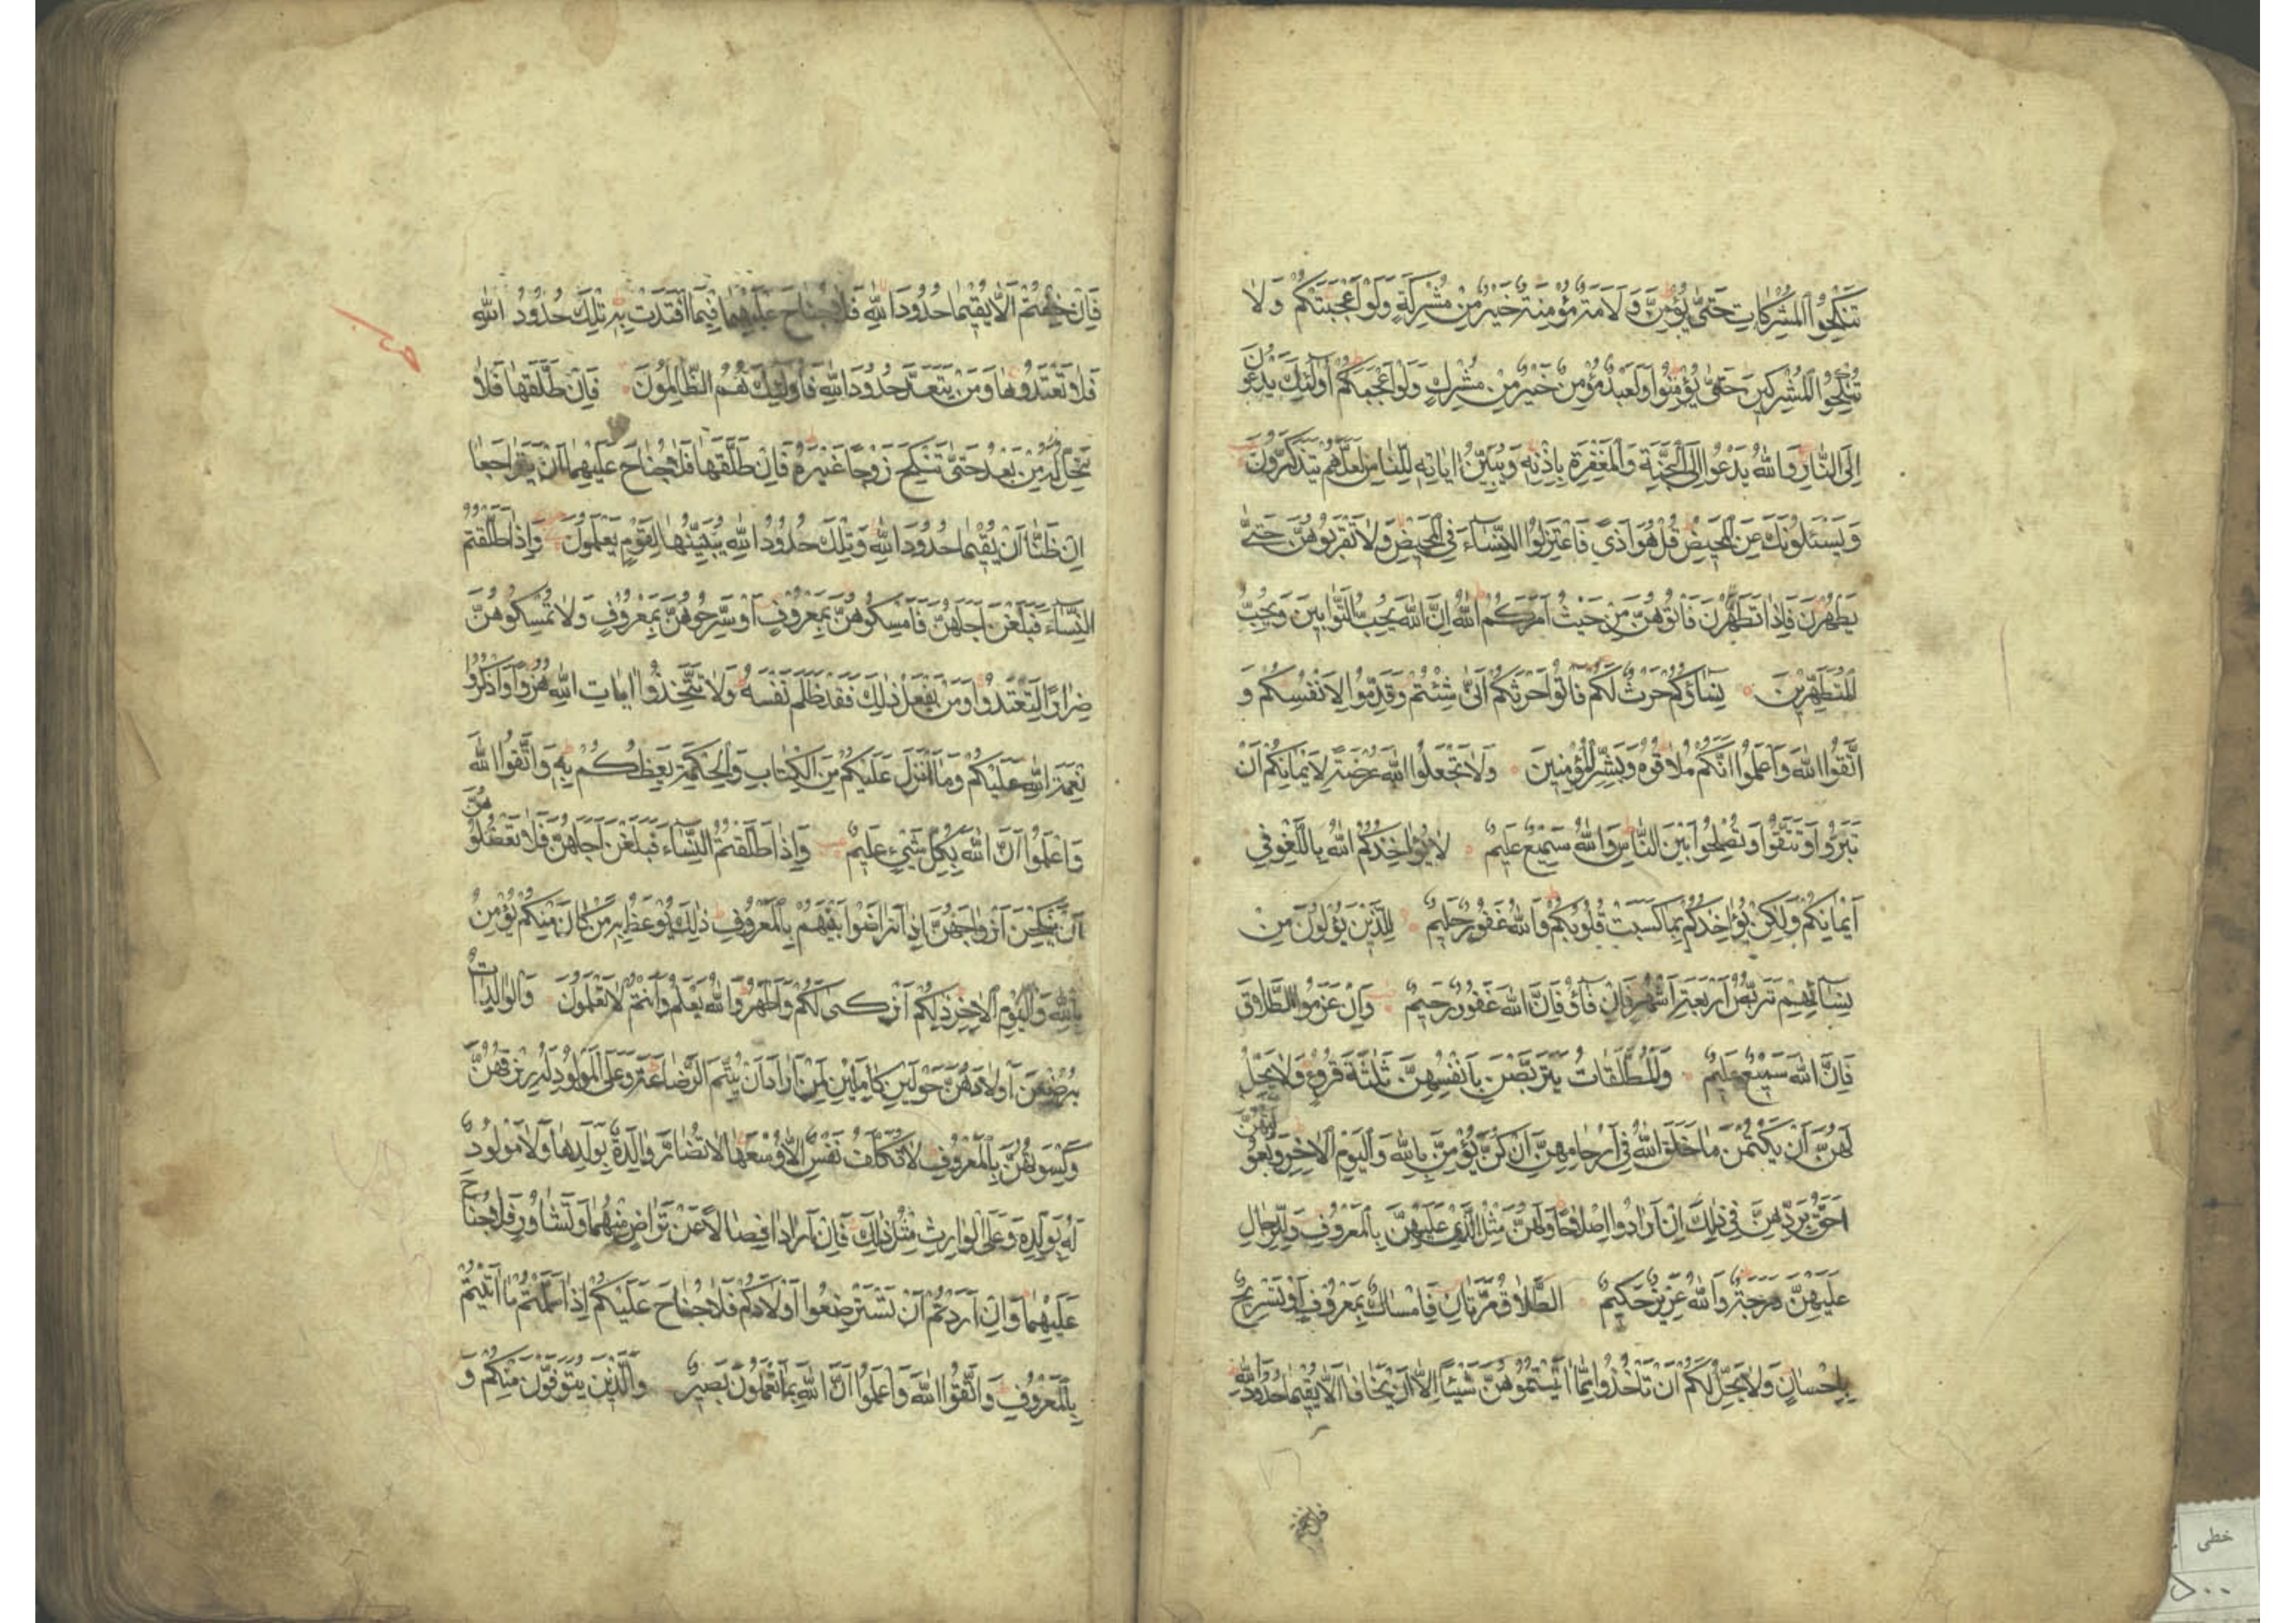 تَنْكِحُوا الْمُشْرِكَاتِ حَتّٰى يُؤْمِنَّ وَلَاَمَةٌ مُؤْمِنَةٌ خَيْرٌ مِنْ مُشْرِكَةٍ وَلَوْ اَعْجَبَتْكُمْ وَلَا
تُنْكِحُوا الْمُشْرِكِينَ حَتّٰى يُؤْمِنُوا وَلَعَبْدٌ مُؤْمِنٌ خَيْرٌ مِنْ مُشْرِكٍ وَلَوْ اَعْجَبَكُمْ اُولٰئِكَ يَدْعُونَ
اِلَى النَّارِ وَاللّٰهُ يَدْعُوا اِلَى الْجَنَّةِ وَالْمَغْفِرَةِ بِاِذْنِهِ وَيُبَيِّنُ اٰيَاتِهِ لِلنَّاسِ لَعَلَّهُمْ يَتَذَكَّرُونَ
وَيَسْئَلُونَكَ عَنِ الْمَحِيضِ قُلْ هُوَ اَذًى فَاعْتَزِلُوا النِّسَاءَ فِى الْمَحِيضِ وَلَا تَقْرَبُوهُنَّ حَتّٰى
يَطْهُرْنَ فَاِذَا تَطَهَّرْنَ فَاْتُوهُنَّ مِنْ حَيْثُ اَمَرَكُمُ اللّٰهُ اِنَّ اللّٰهَ يُحِبُّ التَّوَّابِينَ وَيُحِبُّ
الْمُتَطَهِّرِينَ نِسَاؤُكُمْ حَرْثٌ لَكُمْ فَاْتُوا حَرْثَكُمْ اَنّٰى شِئْتُمْ وَقَدِّمُوا لِاَنْفُسِكُمْ وَ
اتَّقُوا اللّٰهَ وَاعْلَمُوا اَنَّكُمْ مُلَاقُوهُ وَبَشِّرِ الْمُؤْمِنِينَ وَلَا تَجْعَلُوا اللّٰهَ عُرْضَةً لِاَيْمَانِكُمْ اَنْ
تَبَرُّوا وَتَتَّقُوا وَتُصْلِحُوا بَيْنَ النَّاسِ وَاللّٰهُ سَمِيعٌ عَلِيمٌ لَا يُؤَاخِذُكُمُ اللّٰهُ بِاللَّغْوِ فِى
اَيْمَانِكُمْ وَلٰكِنْ يُؤَاخِذُكُمْ بِمَا كَسَبَتْ قُلُوبُكُمْ وَاللّٰهُ غَفُورٌ حَلِيمٌ لِلَّذِينَ يُؤْلُونَ مِنْ
نِسَائِهِمْ تَرَبُّصُ اَرْبَعَةِ اَشْهُرٍ فَاِنْ فَاؤُ فَاِنَّ اللّٰهَ غَفُورٌ رَحِيمٌ وَاِنْ عَزَمُوا الطَّلَاقَ
فَاِنَّ اللّٰهَ سَمِيعٌ عَلِيمٌ وَالْمُطَلَّقَاتُ يَتَرَبَّصْنَ بِاَنْفُسِهِنَّ ثَلٰثَةَ قُرُوءٍ وَلَا يَحِلُّ
لَهُنَّ اَنْ يَكْتُمْنَ مَا خَلَقَ اللّٰهُ فِى اَرْحَامِهِنَّ اِنْ كُنَّ يُؤْمِنَّ بِاللّٰهِ وَالْيَوْمِ الْاٰخِرِ وَبُعُولَتُهُنَّ
اَحَقُّ بِرَدِّهِنَّ فِى ذٰلِكَ اِنْ اَرَادُوا اِصْلَاحًا وَلَهُنَّ مِثْلُ الَّذِى عَلَيْهِنَّ بِالْمَعْرُوفِ وَلِلرِّجَالِ
عَلَيْهِنَّ دَرَجَةٌ وَاللّٰهُ عَزِيزٌ حَكِيمٌ الطَّلَاقُ مَرَّتَانِ فَاِمْسَاكٌ بِمَعْرُوفٍ اَوْ تَسْرِيحٌ
بِاِحْسَانٍ وَلَا يَحِلُّ لَكُمْ اَنْ تَاْخُذُوا مِمَّا اٰتَيْتُمُوهُنَّ شَيْئًا اِلَّا اَنْ يَخَافَا اَلَّا يُقِيمَا حُدُودَ اللّٰهِ
فَاِنْ خِفْتُمْ
فَاِنْ خِفْتُمْ اَلَّا يُقِيمَا حُدُودَ اللّٰهِ فَلَا جُنَاحَ عَلَيْهِمَا فِيمَا افْتَدَتْ بِهِ تِلْكَ حُدُودُ اللّٰهِ
فَلَا تَعْتَدُوهَا وَمَنْ يَتَعَدَّ حُدُودَ اللّٰهِ فَاُولٰئِكَ هُمُ الظَّالِمُونَ فَاِنْ طَلَّقَهَا فَلَا
تَحِلُّ لَهُ مِنْ بَعْدُ حَتّٰى تَنْكِحَ زَوْجًا غَيْرَهُ فَاِنْ طَلَّقَهَا فَلَا جُنَاحَ عَلَيْهِمَا اَنْ يَتَرَاجَعَا
اِنْ ظَنَّا اَنْ يُقِيمَا حُدُودَ اللّٰهِ وَتِلْكَ حُدُودُ اللّٰهِ يُبَيِّنُهَا لِقَوْمٍ يَعْلَمُونَ وَاِذَا طَلَّقْتُمُ
النِّسَاءَ فَبَلَغْنَ اَجَلَهُنَّ فَاَمْسِكُوهُنَّ بِمَعْرُوفٍ اَوْ سَرِّحُوهُنَّ بِمَعْرُوفٍ وَلَا تُمْسِكُوهُنَّ
ضِرَارًا لِتَعْتَدُوا وَمَنْ يَفْعَلْ ذٰلِكَ فَقَدْ ظَلَمَ نَفْسَهُ وَلَا تَتَّخِذُوا اٰيَاتِ اللّٰهِ هُزُوًا وَاذْكُرُوا
نِعْمَةَ اللّٰهِ عَلَيْكُمْ وَمَا اَنْزَلَ عَلَيْكُمْ مِنَ الْكِتَابِ وَالْحِكْمَةِ يَعِظُكُمْ بِهِ وَاتَّقُوا اللّٰهَ
وَاعْلَمُوا اَنَّ اللّٰهَ بِكُلِّ شَىْءٍ عَلِيمٌ وَاِذَا طَلَّقْتُمُ النِّسَاءَ فَبَلَغْنَ اَجَلَهُنَّ فَلَا تَعْضُلُوهُنَّ
اَنْ يَنْكِحْنَ اَزْوَاجَهُنَّ اِذَا تَرَاضَوْا بَيْنَهُمْ بِالْمَعْرُوفِ ذٰلِكَ يُوعَظُ بِهِ مَنْ كَانَ مِنْكُمْ يُؤْمِنُ
بِاللّٰهِ وَالْيَوْمِ الْاٰخِرِ ذٰلِكُمْ اَزْكٰى لَكُمْ وَاَطْهَرُ وَاللّٰهُ يَعْلَمُ وَاَنْتُمْ لَا تَعْلَمُونَ وَالْوَالِدَاتُ
يُرْضِعْنَ اَوْلَادَهُنَّ حَوْلَيْنِ كَامِلَيْنِ لِمَنْ اَرَادَ اَنْ يُتِمَّ الرَّضَاعَةَ وَعَلَى الْمَوْلُودِ لَهُ رِزْقُهُنَّ
وَكِسْوَتُهُنَّ بِالْمَعْرُوفِ لَا تُكَلَّفُ نَفْسٌ اِلَّا وُسْعَهَا لَا تُضَارَّ وَالِدَةٌ بِوَلَدِهَا وَلَا مَوْلُودٌ
لَهُ بِوَلَدِهِ وَعَلَى الْوَارِثِ مِثْلُ ذٰلِكَ فَاِنْ اَرَادَا فِصَالًا عَنْ تَرَاضٍ مِنْهُمَا وَتَشَاوُرٍ فَلَا جُنَاحَ
عَلَيْهِمَا وَاِنْ اَرَدْتُمْ اَنْ تَسْتَرْضِعُوا اَوْلَادَكُمْ فَلَا جُنَاحَ عَلَيْكُمْ اِذَا سَلَّمْتُمْ مَا اٰتَيْتُمْ
بِالْمَعْرُوفِ وَاتَّقُوا اللّٰهَ وَاعْلَمُوا اَنَّ اللّٰهَ بِمَا تَعْمَلُونَ بَصِيرٌ وَالَّذِينَ يُتَوَفَّوْنَ مِنْكُمْ وَ
حزب
خطی